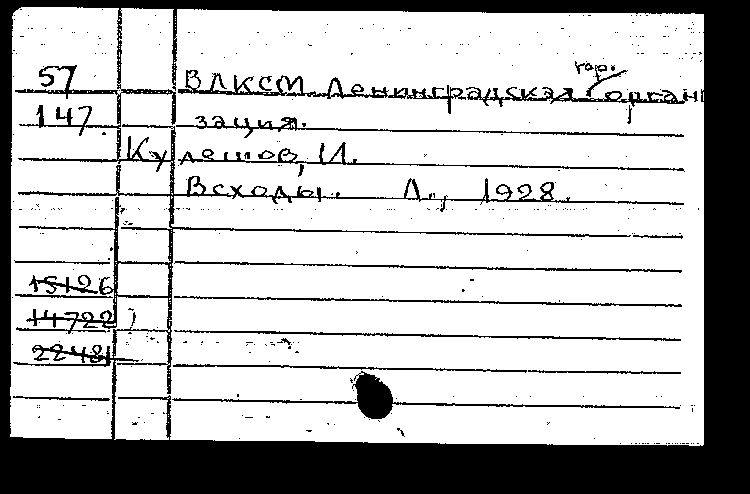 гор.
57 ВЛКСМ. Ленинградская органи
147 зация.
Кулешов, И.
Всходы. Л., 1928.
15126
14722
22481